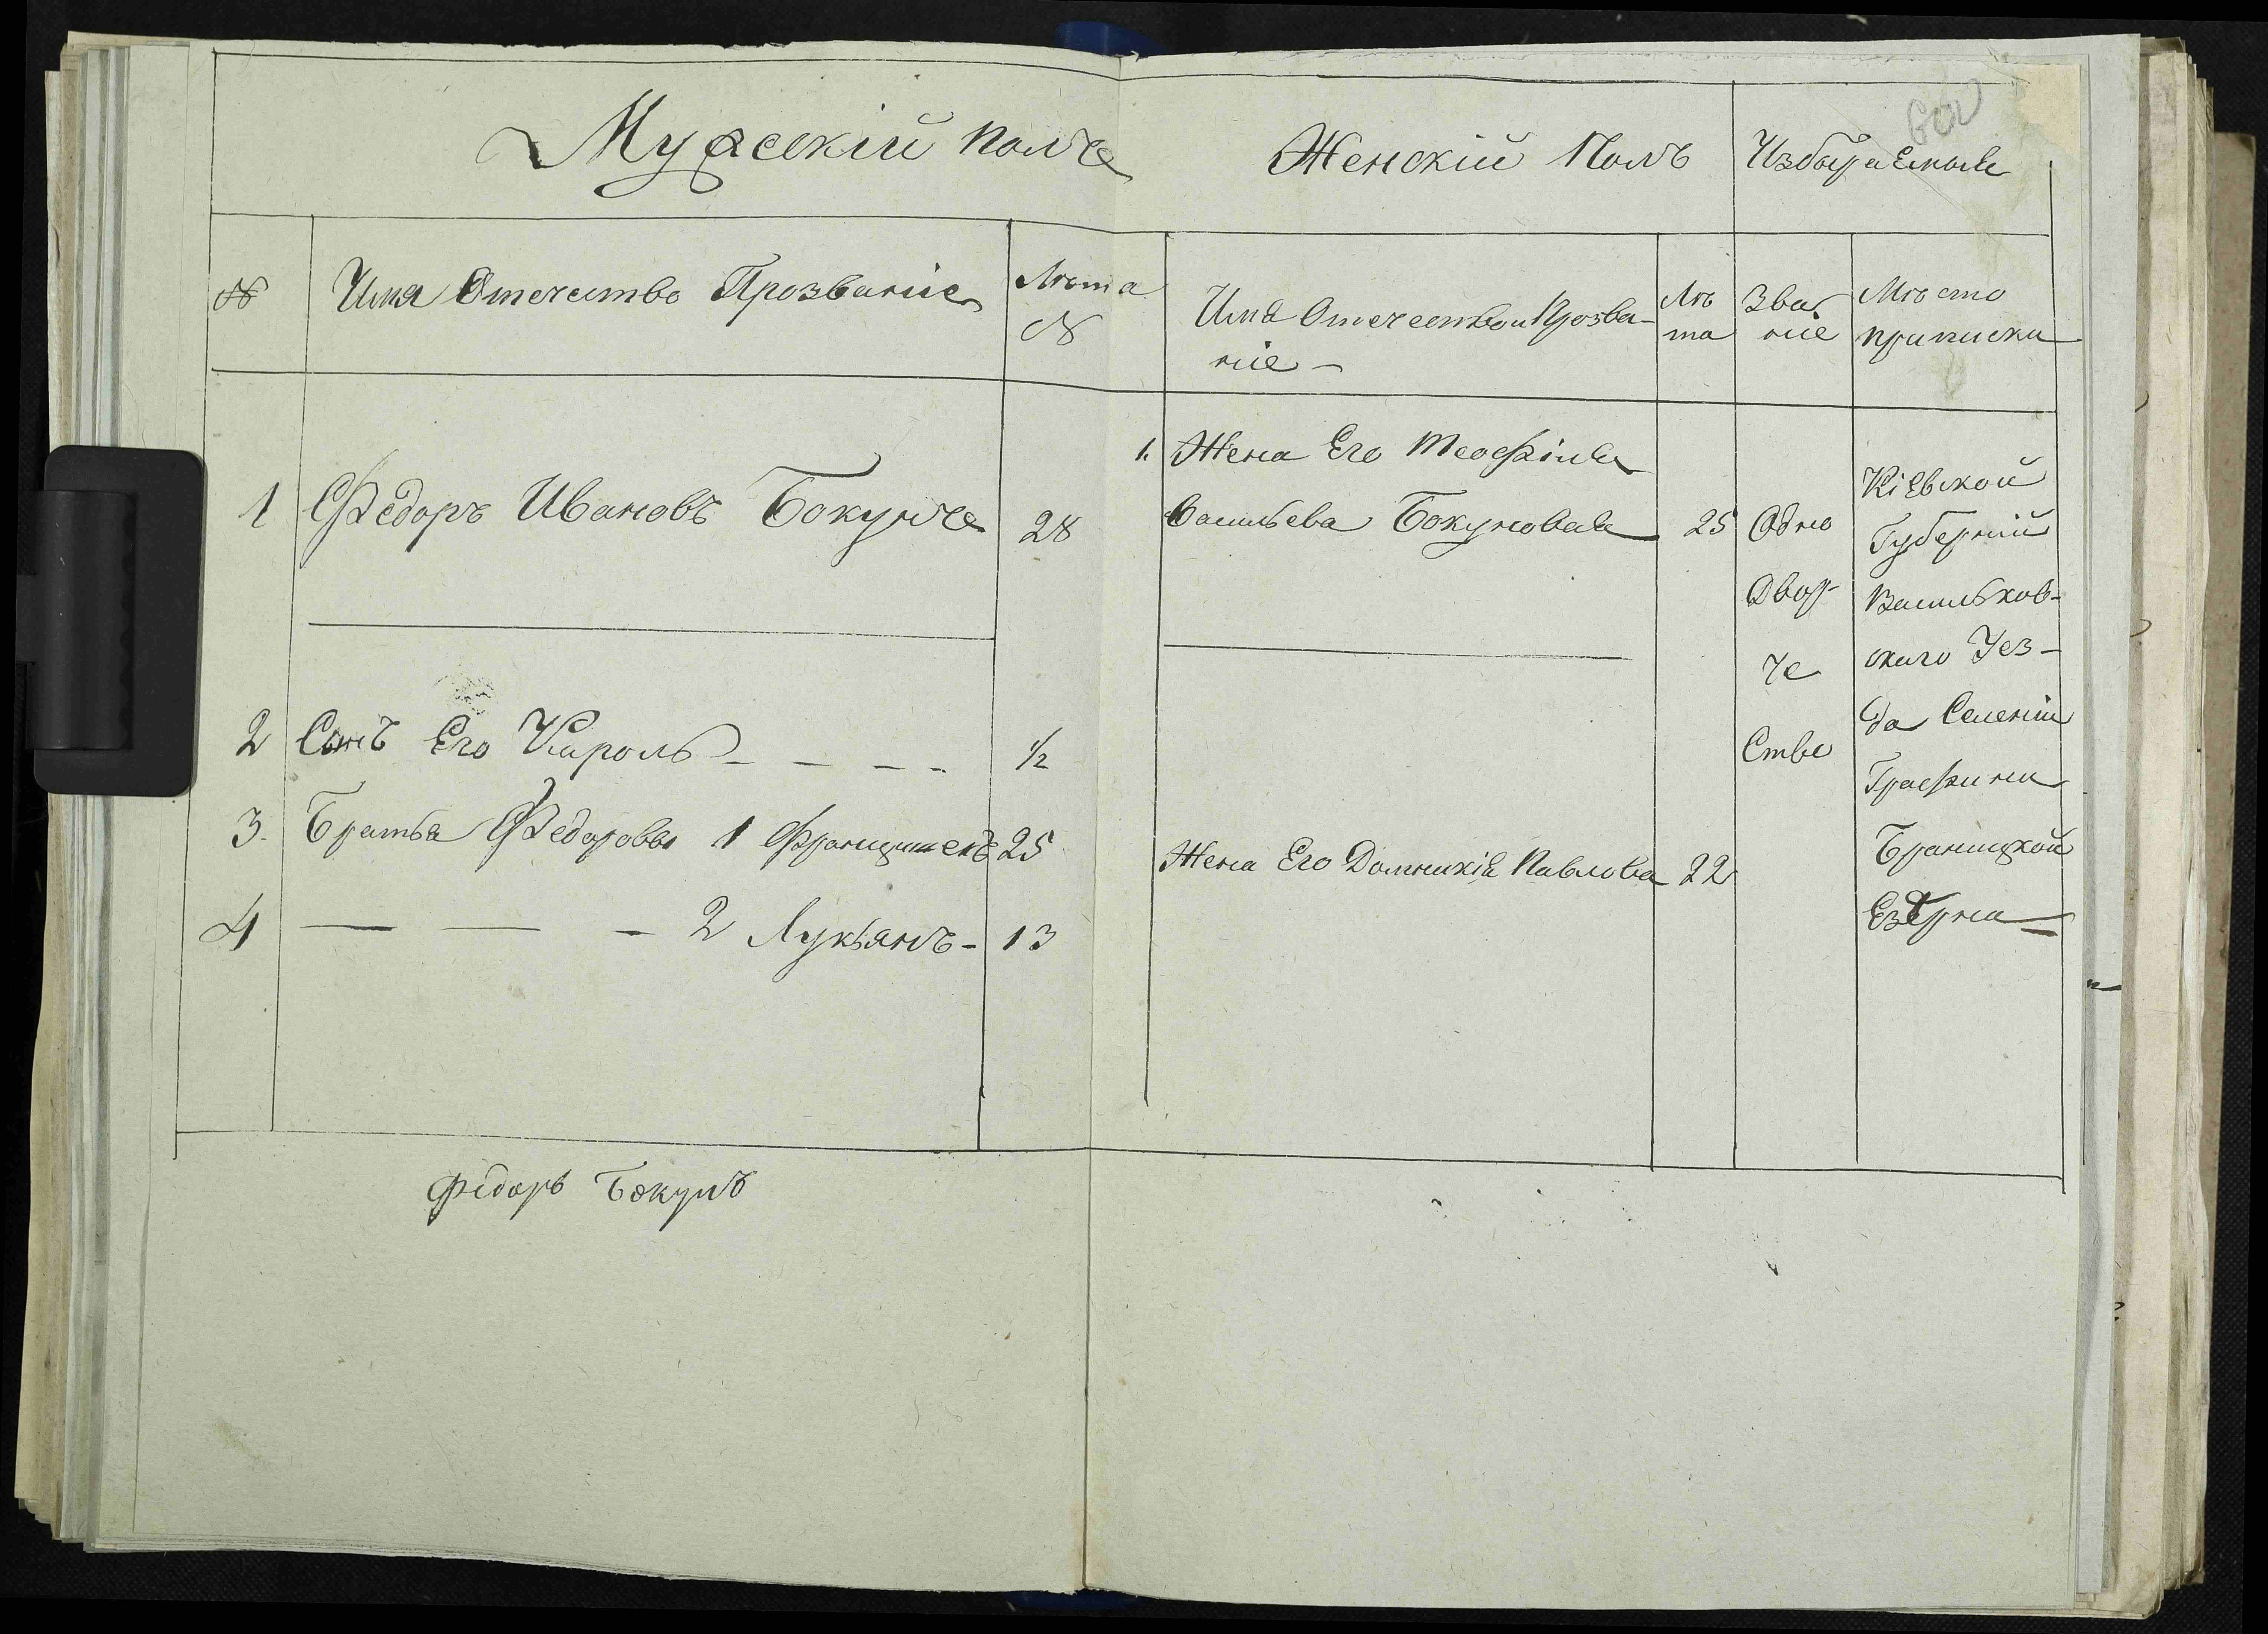 Мужескій полъ
Женскій Полъ
Избираемыя
№
Имя Отечество Прозваніе
Лѣта
№
Имя Отечество и Прозва-
ніе -
Лѣ
та
Зва
ніе
Мѣсто
приписки
1
Федоръ Ивановъ Бокунъ
28
1. Жена Его Теофиля
Васильева Бокуновая
25
Одно
Двор-
че
Стве
Кіевской
Губерніи
Васильков-
скаго Уез-
да Селеніи
Графини
Браницкой
Езерна
2 Сынъ Его Кароль - - - -
1/2
3. Братья Федоровы 1 Францишекъ 25
Жена Его Доминикія Павлова 22
4 — — - 2 Лукьянъ - 13
Федоръ Бокунъ